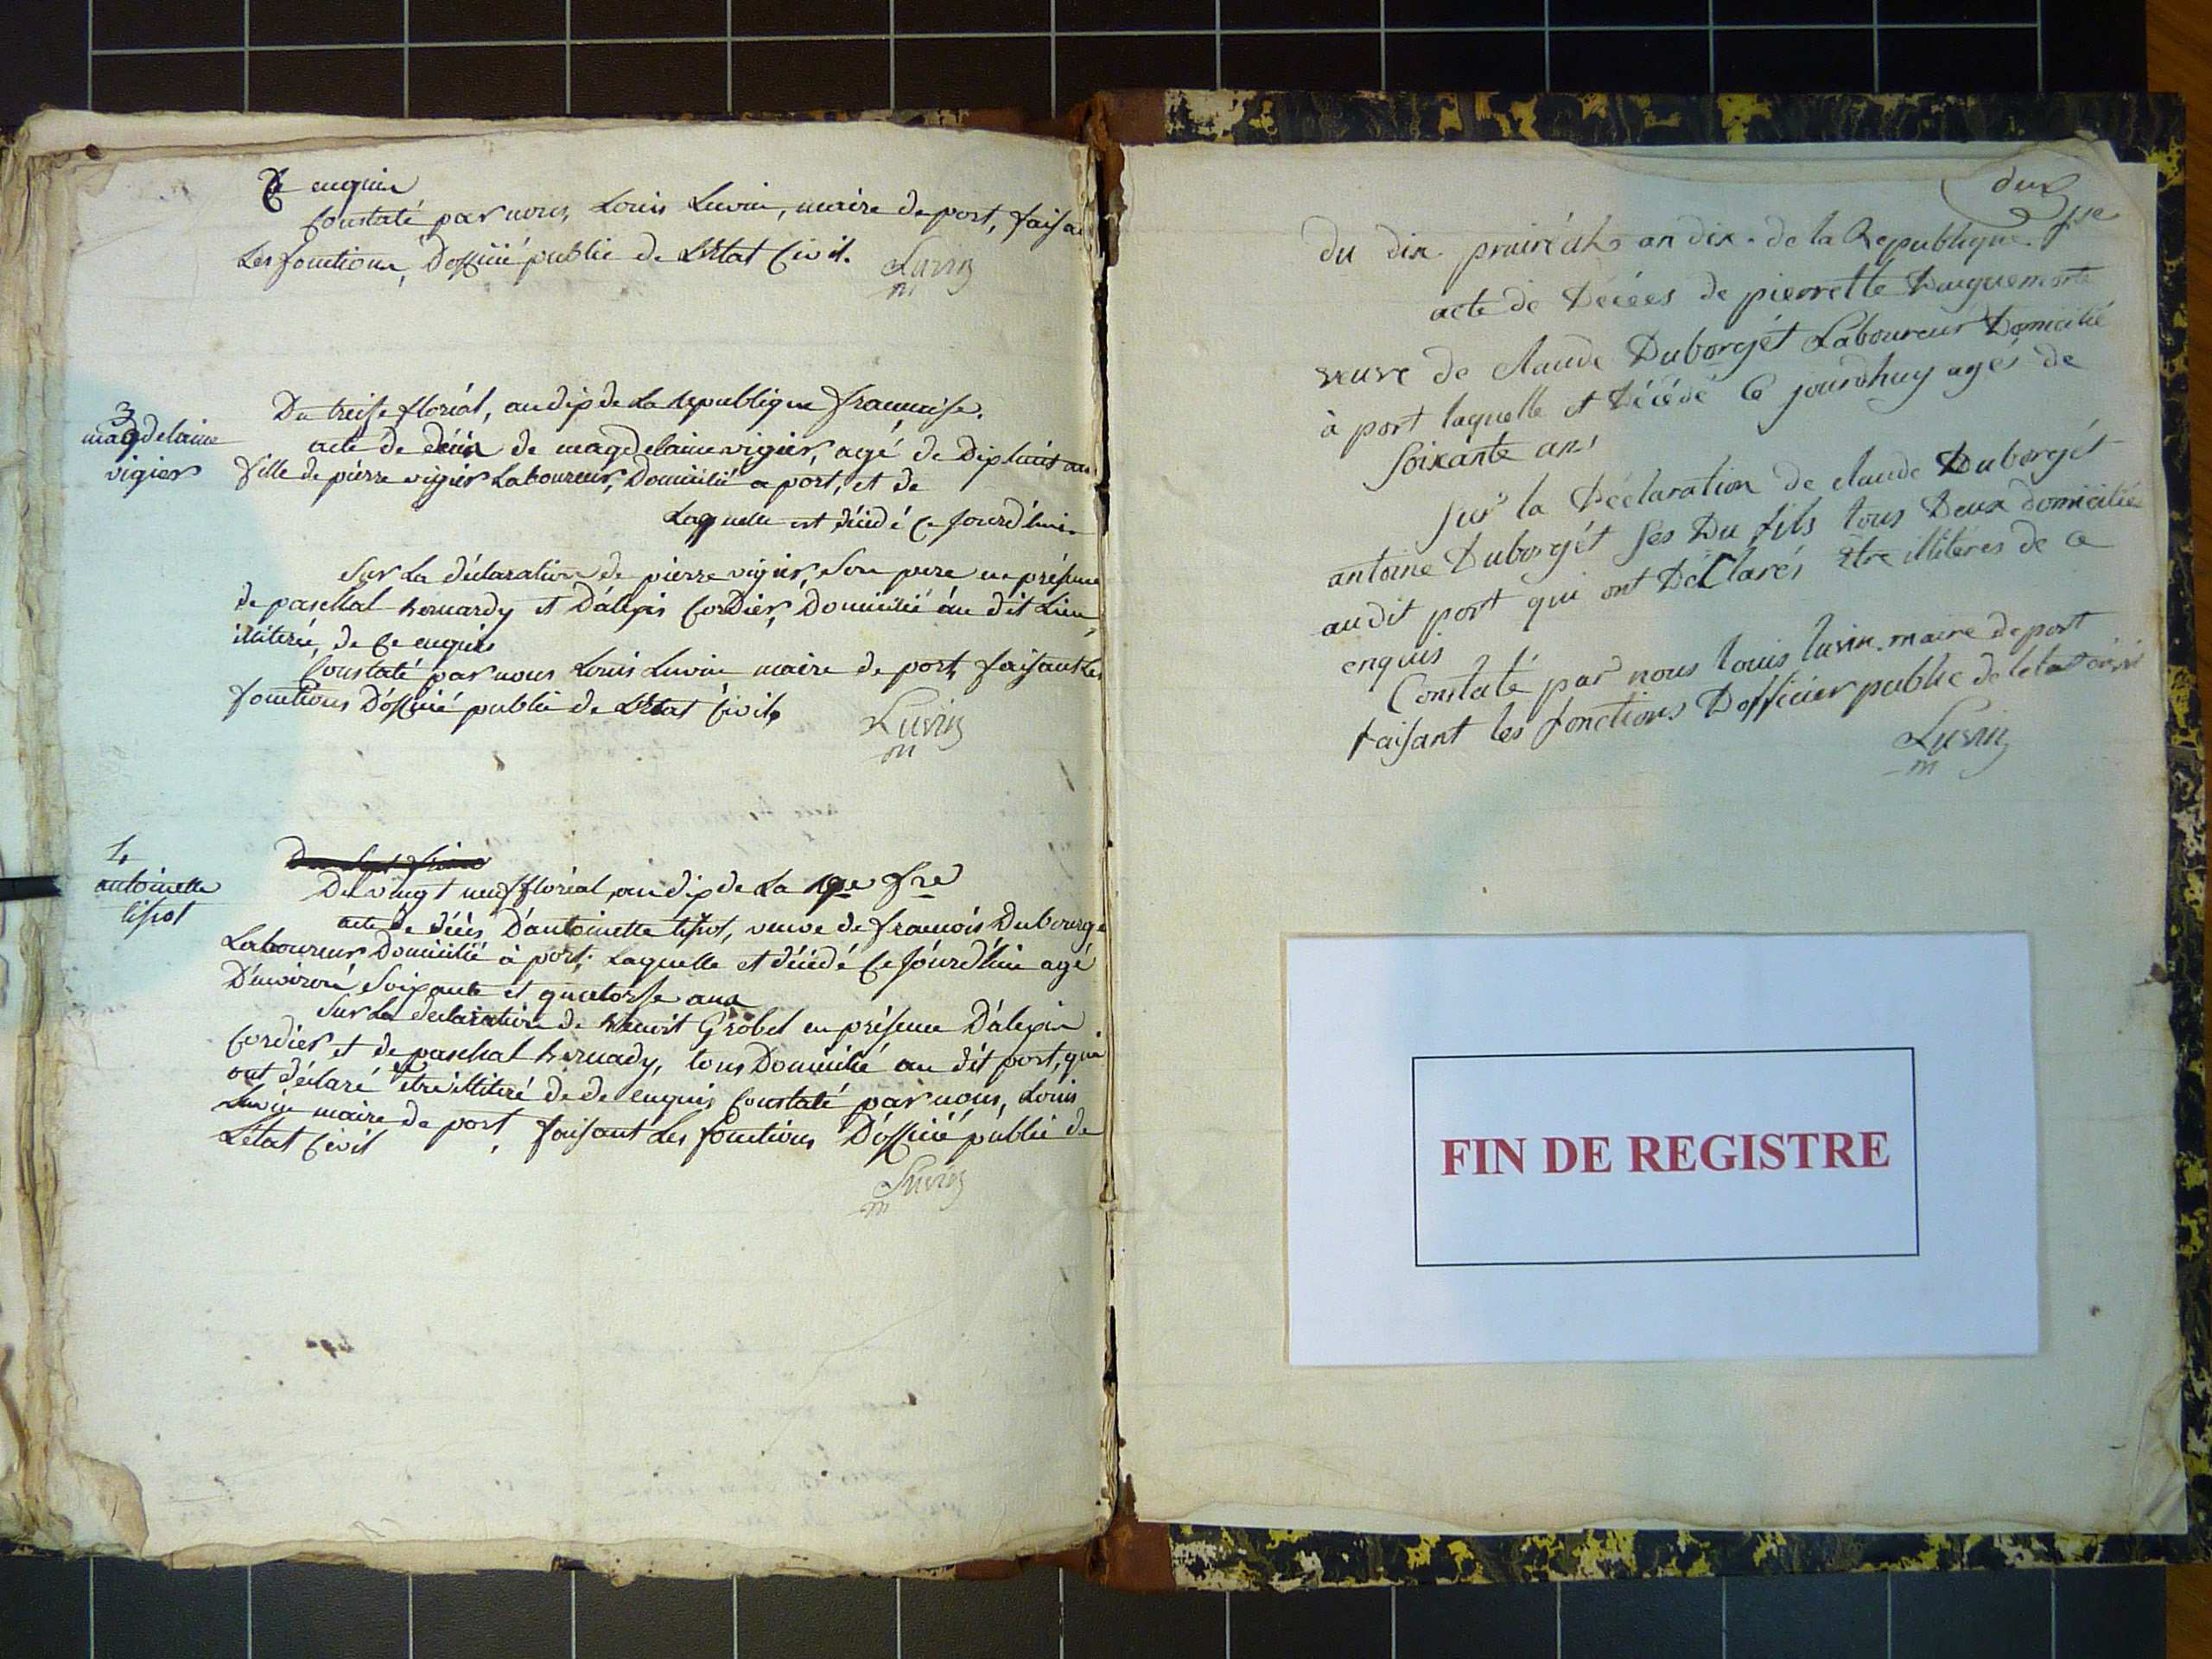 Ce enquis
Constaté par nous, Louis Luvin, maire de port, faisa
Les fonctions, D'officié public de L'Etat Civil.
Luvin
m
3
magdelaine
vigier
Du treise floréal, an dix de La republique françoise.
acte de décès de magdelaine vigier, agé de Dix huit ans
fille de pierre vigier Laboureur, Domicilié a port, et de
Laquelle est décédé Ce Jourd'hui
Sur La déclaration de pierre vigier, Son pere en présence
de paschal bernardy et D'alexis Cordier, Domicilié au dit Lieu
illiteré, de Ce enquis
Constaté par nous Louis Luvin maire de port, faisant Les
fonctions D'officié public de L'Etat Civil
Luvin
m
antoinette
tissot
Du vingt neuf floréal, an dix de La rpe fre
acte de décès D'antoinette tissot, veuve de francois Dubourge
Laboureur Domicilié à port, Laquelle et décédé Ce Jourd'hui agé
D'environ Soixante et quatorse ans
Sur La declaration de benoit Grobel en présence D'alexis
Cordier et de paschal bernady, tous Domicilié au dit port, qui
ont déclaré être illiteré de de enquis Constaté par nous, Louis
Luvin maire de port, faisant Les fonctions D'officié public de
L'état Civil
Luvin
m
deux
du dix prairéal an dix de la Republique fse
acte de Décées de pierrette
veuve de claude Duborjét Laboureur Domicilié
à port laquelle et Décédé Ce jourdhuy agés de
soixante ans
sur la Déclaration de claude Duborgét
antoine Duborjét ses Du fils tous Deux domiciliés
audit port qui ont Déclarés être illitéres de ce
enquis
Constaté par nous louis luvin maire de port
faisant les fonctions D'officier public de letat civil
Luvin
m
FIN DE REGISTRE